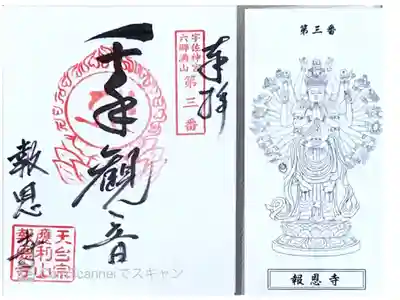 奉拝
宇佐神宮
六郷満山
第三番
千手観音
報恩寺
天台宗
摩利山
報恩寺
Scannerでスキャン
第三番
報恩寺